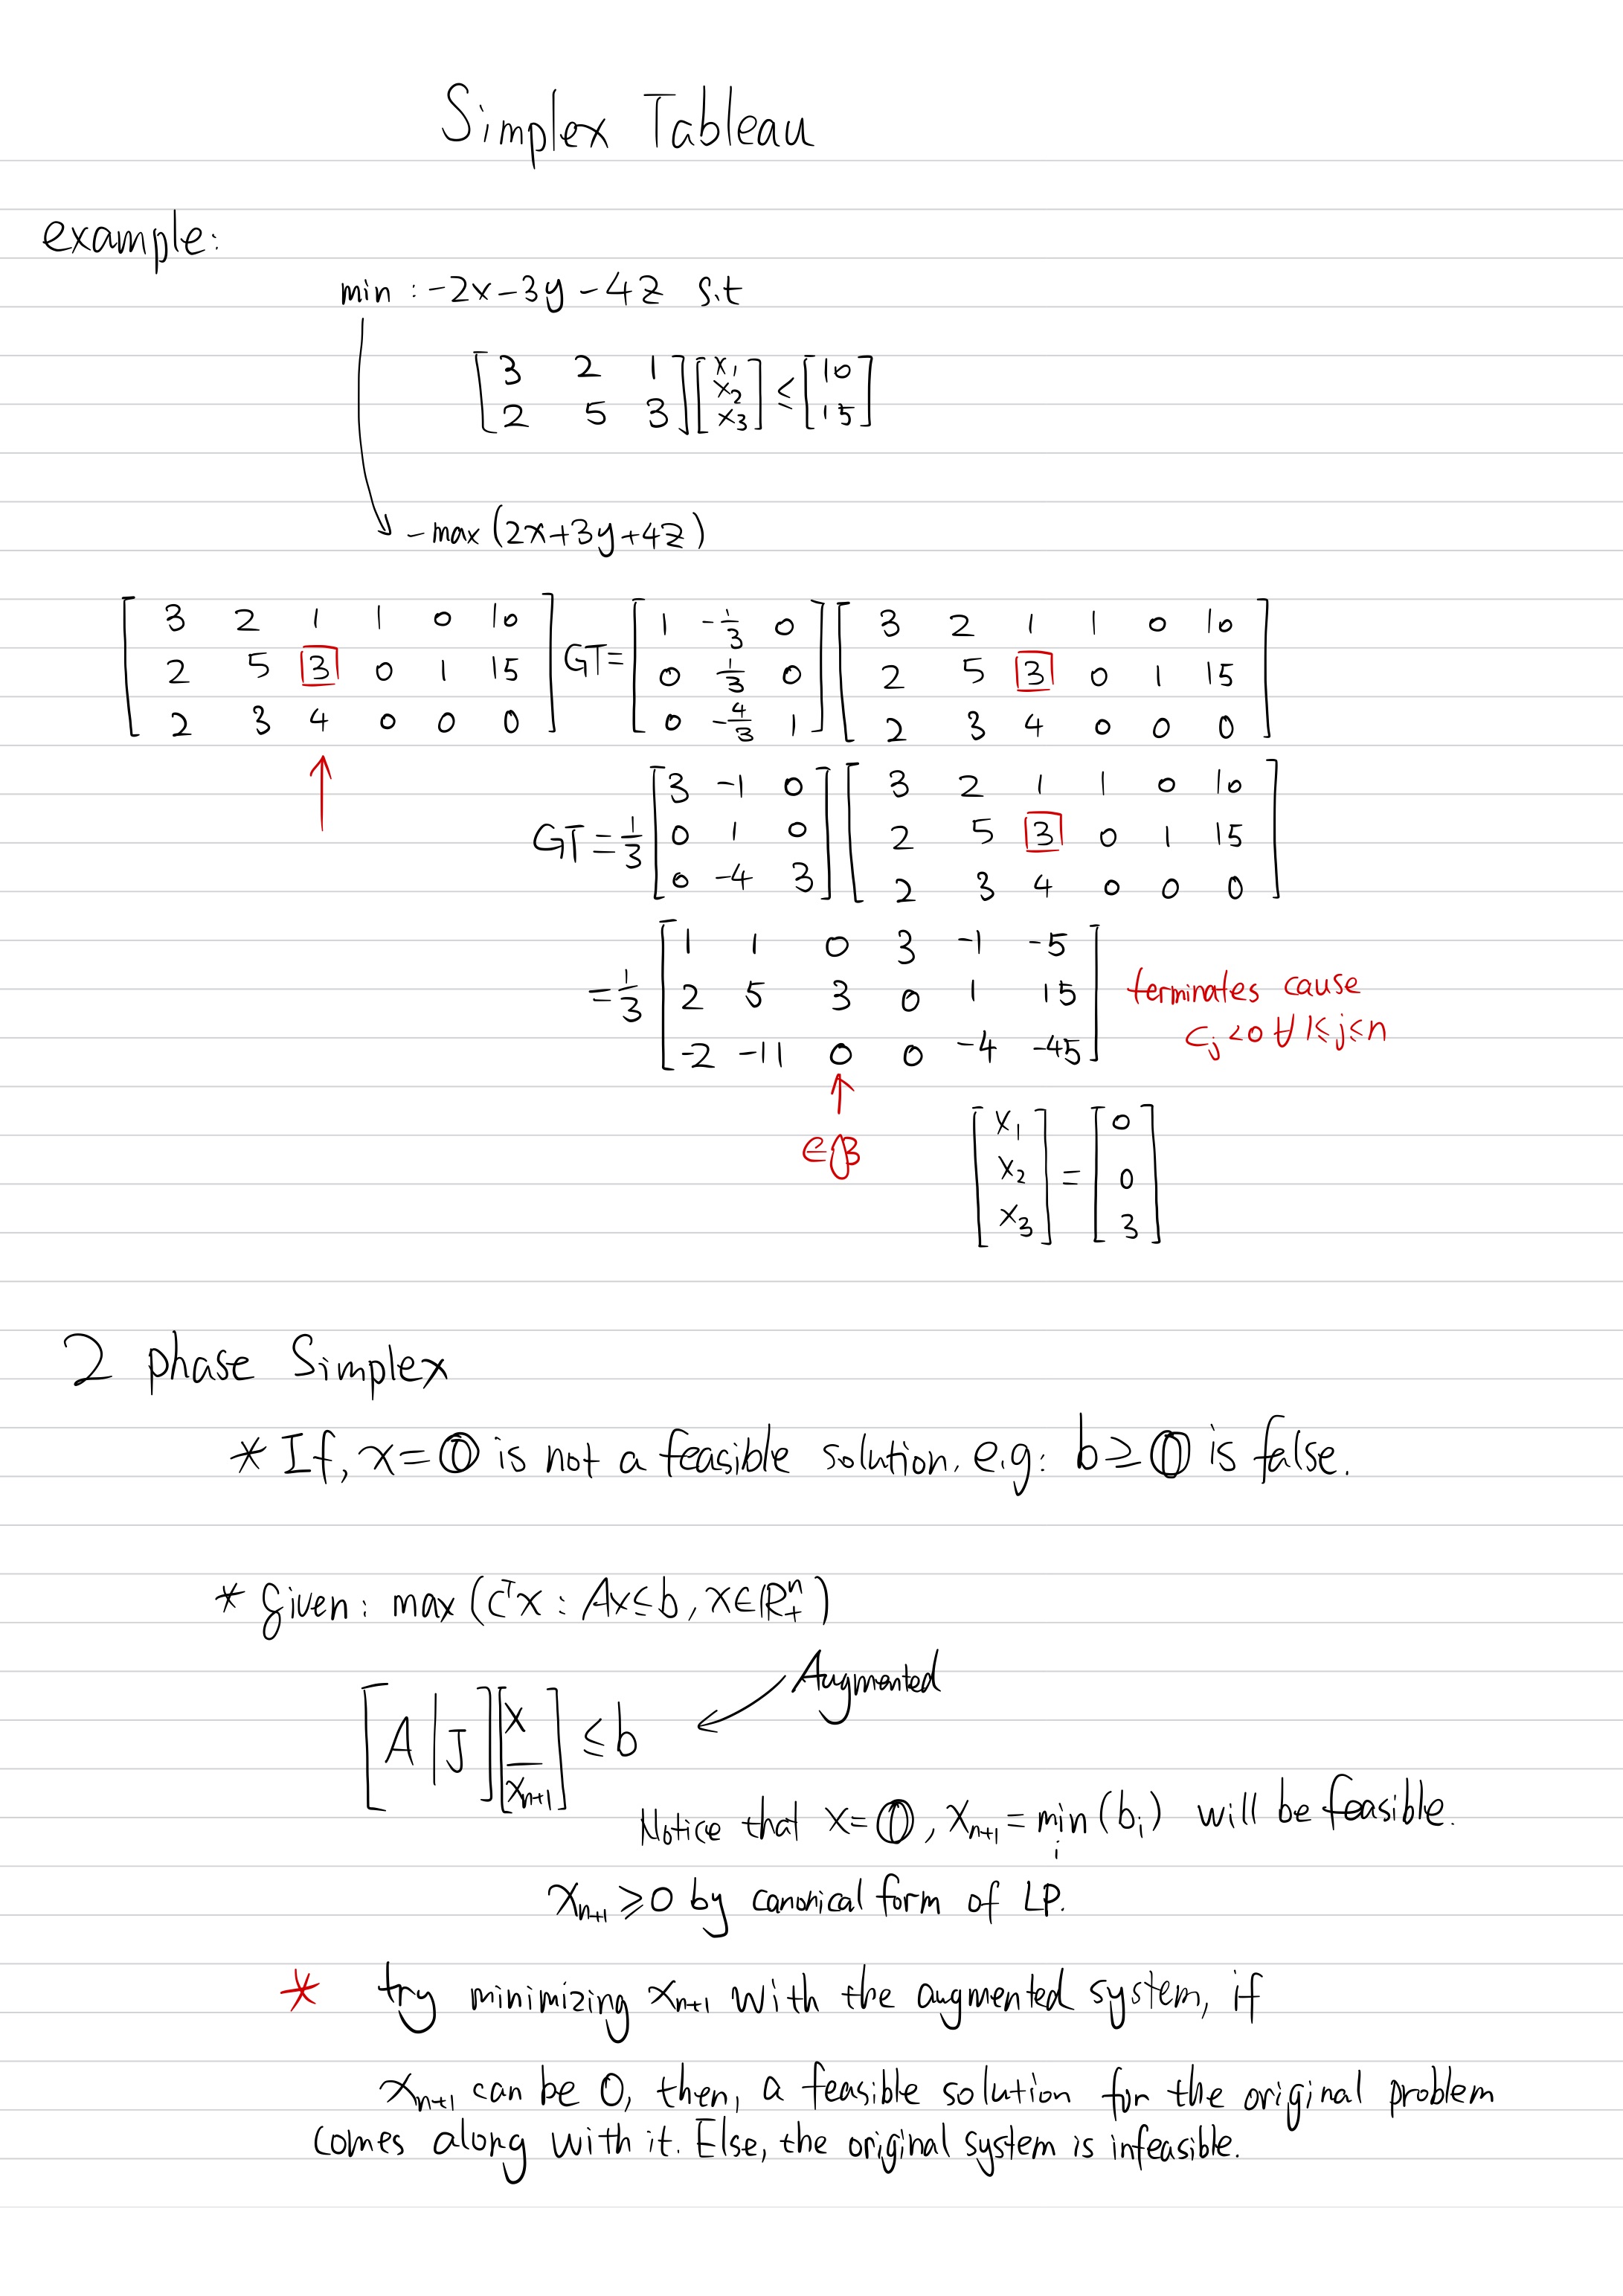 Simplex Tableau
example:
min : -2x-3y-4z s.t
[3 2 1; 2 5 3] [x₁; x₂; x₃] ≤ [10; 15]
-max(2x+3y+4z)
[3 2 1 1 0 10; 2 5 3 0 1 15; 2 3 4 0 0 0] GT= [1 -1/3 0; 0 1/3 0; 0 -4/3 1] [3 2 1 1 0 10; 2 5 3 0 1 15; 2 3 4 0 0 0]
GT = 1/3 [3 -1 0; 0 1 0; 0 -4 3] [3 2 1 1 0 10; 2 5 3 0 1 15; 2 3 4 0 0 0]
= 1/3 [1 1 0 3 -1 -5; 2 5 3 0 1 15; -2 -11 0 0 -4 -45]
terminates cause
cⱼ<0 ∀ 1≤j≤n
∈β
[x₁; x₂; x₃] = [0; 0; 3]
2 phase Simplex
* If, x=𝟘 is not a feasible solution, e.g: b≥𝟘 is false.
* Given: max(cᵀx : Ax≤b, x∈ℝ₊ⁿ)
Augmented
[A|J] [x; xₙ₊₁] ≤ b
Notice that x=𝟘, xₙ₊₁ = min(bᵢ) will be feasible.
i
xₙ₊₁ ≥ 0 by canonical form of LP.
* try minimizing xₙ₊₁ with the augmented system, if
xₙ₊₁ can be 0, then, a feasible solution for the original problem
comes along with it. Else, the original system is infeasible.